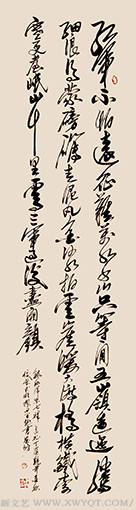 红軍不怕遠征難萬水千山只等闲五嶺逶迤騰
細浪烏蒙磅礴走泥丸金沙水拍雲崖暖大渡橋横鐵索
寒更喜岷山千里雪三軍過後盡開顔
新文艺 WWW.XWYQT.COM